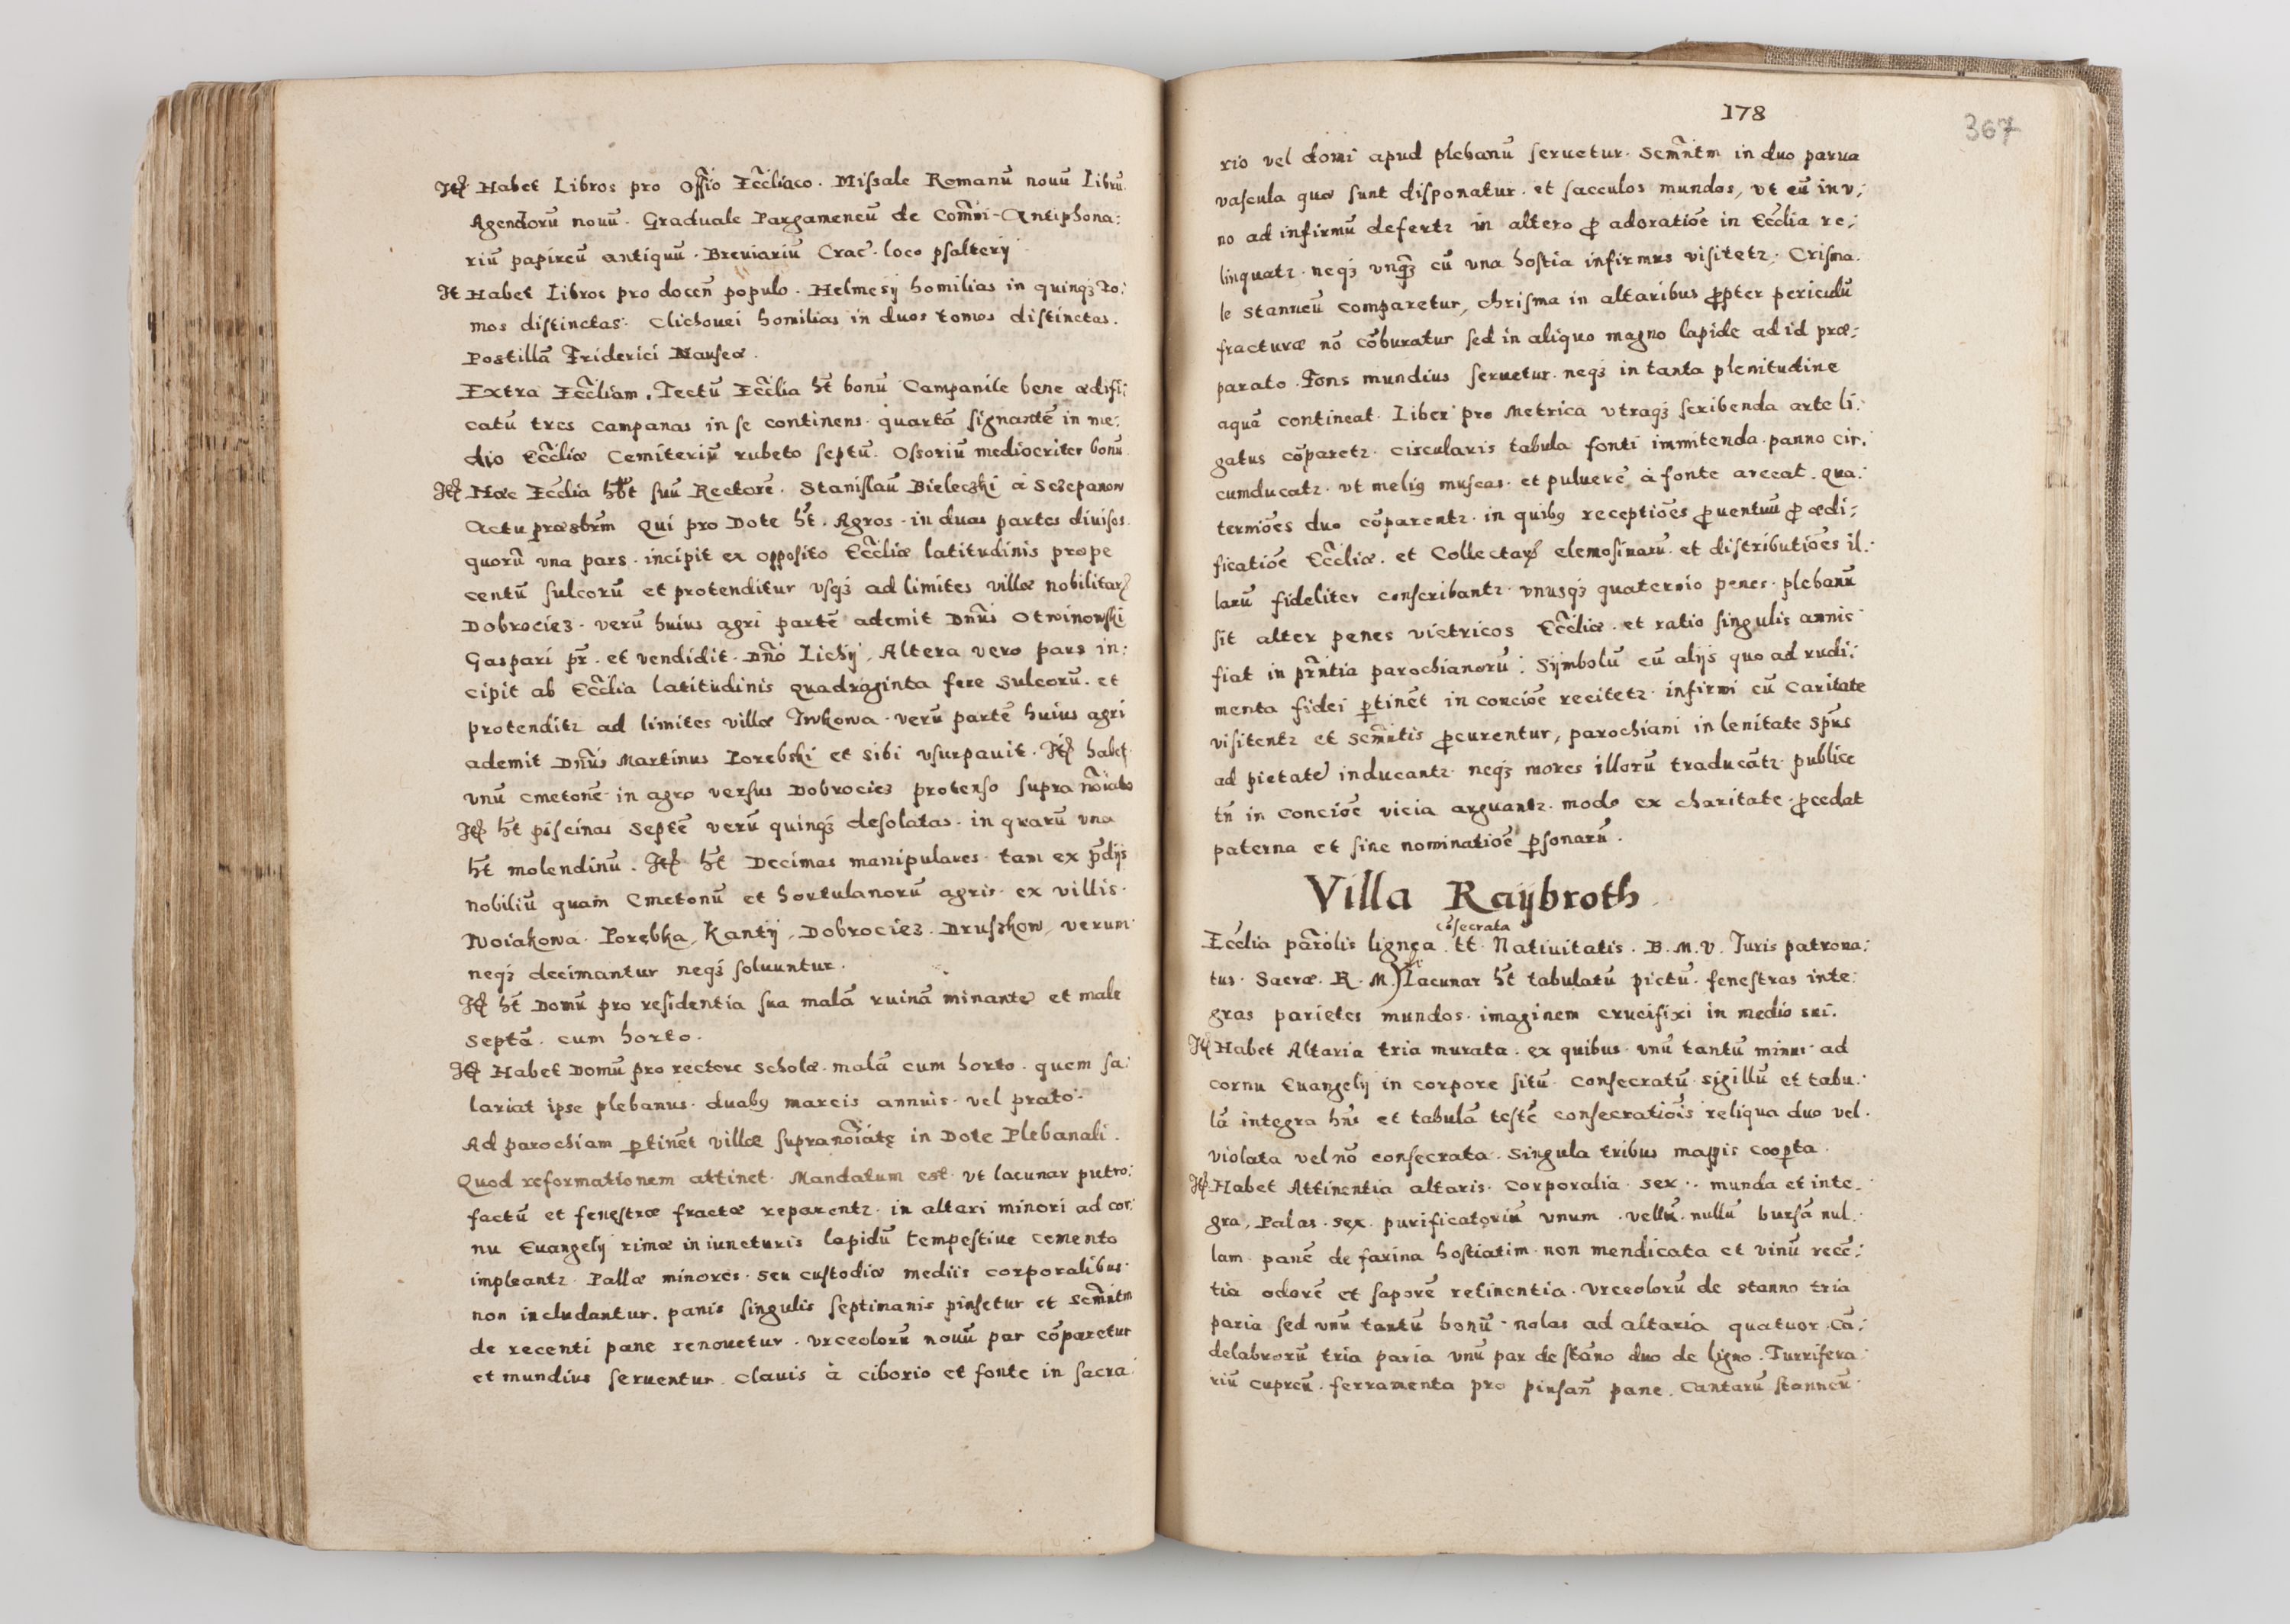 Itẽ Habet Libros pro Offio Eccliaco. Missale Romanũ nouũ Librũ
Agendorũ nouũ. Graduale Pargameneũ de Com̃ni. Antiphona:
riũ papireũ antiquũ. Breuiariũ Crac̃. loco psalterij
It Habet Libros pro docen̄ populo. Helmesij homilias in quinq3 To:
mos distinctas. Clichouei homilias in duos tomos distinctas.
Postillã Friderici Nauseæ.
Extra Eccliam. Tectũ Ecclia ht̃ bonũ Campanile bene ædifi:
catũ tres campanas in se continens. quartã signantẽ in me:
dio Eccliæ Cemiteriũ rubeto septũ. Ossoriũ mediocriter bonũ
Itẽ Hæc Ecclia ht̃ suũ Rectorẽ. Stanislaũ Bieleczki à Sczepanow
Actu præsbrm̃ Qui pro Dote ht̃. Agros. in duas partes diuisos.
quorũ vna pars. incipit ex opposito Eccliæ latitudinis prope
centũ sulcorũ et protenditur vsq3 ad limites villæ nobilitar̃
Dobrociez. verũ huius agri partẽ ademit Dnũs Otwinowski
Gaspari pr̃. et vendidit. Dnõ Lichij. Altera vero pars in:
cipit ab Ecclia latitudinis quadraginta fere Sulcorũ. et
protenditz ad limites villæ Iwkowa. verũ partẽ huius agri
ademit Dnũs Martinus Porebski et sibi vsurpauit. Itẽ habet
vnũ Cmetonẽ in agro versus Dobrociez protenso supra nõiato
Itẽ ht̃ piscinas septẽ verũ quinq3 desolatas. in quarũ vna
ht̃ molendinũ. Itẽ ht̃ Decimas manipulares. tam ex p̃dijs
nobiliũ quam Cmetonũ et hortulanorũ agris. ex villis.
Woiakowa. Porębka, Kantij, Dobrociez. Druszkow, verum
neq3 decimantur neq3 soluuntur.
Itẽ ht̃ Domũ pro residentia sua malã ruinã minante et male
septã. cum horto.
Itẽ Habet Domũ pro rectore scholæ. malã cum horto. quem sa:
lariat ipse plebanus. duabꝰ marcis annuis. vel prato.
Ad parochiam ptinẽt villæ supranoĩatę in Dote Plebanali.
Quod reformationem attinet. Mandatum est. vt lacunar putro:
factũ et fenestræ fractæ reparentz. in altari minori ad cor:
nu Euangelij rimæ in iuncturis lapidũ tempestiue cemento
impleantz. Pallæ minores. seu custodiæ mediis corporalibus.
non includantur. panis singulis septimanis pinsetur et Scm̃ntm
de recenti pane renouetur. vrceolorũ nouũ par cõparetur
et mundius seruentur. Clauis à ciborio et fonte in sacra:
178
367
rio vel domi apud plebanũ seruetur. Scm̃ntm in duo parua
vascula quæ sunt disponatur. et sacculos mundos, vt cũ in v:
no ad infirmũ defertz in altero ꝓ adoratiõe in Ecclia re:
linquatz. neq3 vnq̃3 cũ vna hostia infirmus visitetz. Crisma.
le stanneũ comparetur, chrisma in altaribus ꝓpter periculũ
fracturæ nõ cõburatur sed in aliquo magno lapide ad id præ:
parato. Fons mundius seruetur. neq3 in tanta plenitudine
aquã contineat. Liber pro Metrica vtraq3 scribenda arte li:
gatus cõparetz. circularis tabula fonti immitenda panno cir:
cumducatz. vt meliꝰ muscas et puluerẽ à fonte arceat. Qua:
termiões duo cõparentz. in quibꝰ receptiões ꝓuentuũ ꝓ ædi:
ficatiõe Eccliæ. et Collectarũ elemosinarũ. et distributiões il:
larũ fideliter conscribantz. vnusq3 quaternio penes. plebanũ
sit alter penes victricos Eccliæ. et ratio singulis annis
fiat in prñtia parochianorũ. Sijmbolũ cũ alijs quo ad rudi:
menta fidei ptinẽt in conciõe recitetz. infirmi cũ caritate
visitentz et scm̃ntis ꝓcurentur, parochiani in lenitate spũs
ad pietatẽ inducantz. neq3 mores illorũ traducãtz. publice
tñ in conciõe vicia arguantz. modo ex charitate ꝓcedat
paterna et sine nominatiõe psonarũ.
Villa Raijbroth
cõsecrata
Ecclia parõlis lignea. tt. Natiuitatis. B. M. V. Iuris patrona:
tus. Sacræ. R. M. Lacunar ht̃ tabulatũ pictũ. fenestras inte:
gras parietes mundos. imaginem crucifixi in medio sui.
Itẽ Habet Altaria tria murata. ex quibus. vnũ tantũ minus ad
cornu Euangelij in corpore sitũ. consecratũ. sigillũ et tabu:
lã integra hñs et tabulã testẽ consecratiõis reliqua duo vel.
violata vel nõ consecrata. Singula tribus mappis coopta.
Itẽ Habet Attinentia altaris. Corporalia. sex. munda et inte:
gra, Palas. sex. purificatoriũ vnum. vellũ. nullũ bursã nul:
lam. panẽ de farina hostiatim. non mendicata et vinũ recẽ:
tia odorẽ et saporẽ retinentia. Vrceolorũ de stanno tria
paria sed vnũ tantũ bonũ. nolas ad altaria quatuor. Cã:
delabrorũ tria paria vnũ par de stãno duo de ligno. Turrifera:
riũ cupreũ. ferramenta pro pinsañ pane. Cantarũ stanneũ.